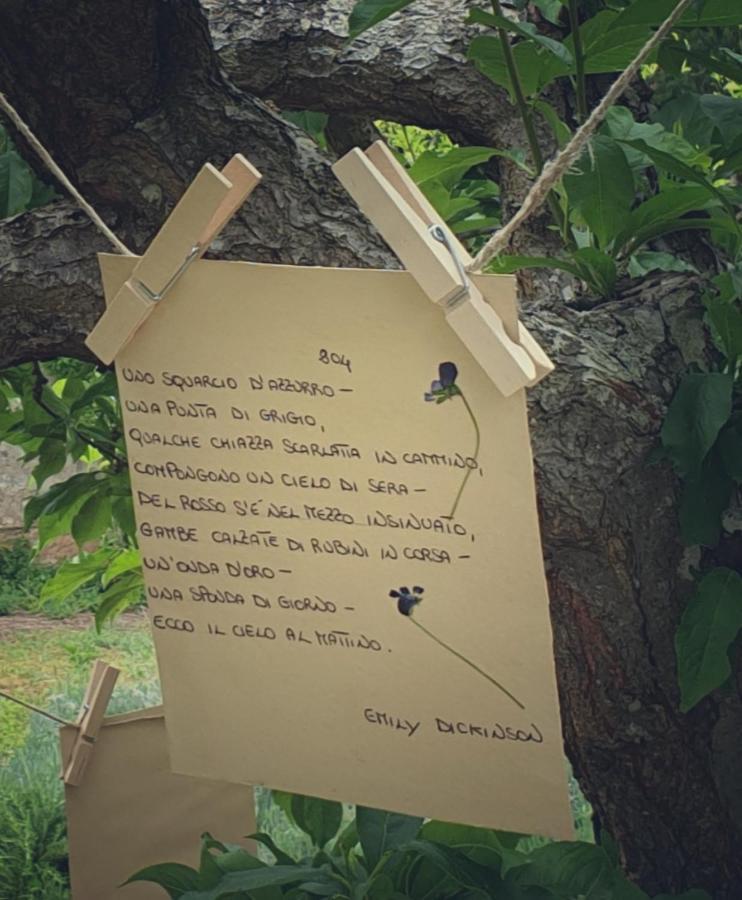 804
UNO SQUARCIO D'AZZURRO –
UNA PUNTA DI GRIGIO,
QUALCHE CHIAZZA SCARLATTA IN CAMMINO,
COMPONGONO UN CIELO DI SERA –
DEL ROSSO S'É NEL MEZZO INSINUATO,
GAMBE CALZATE DI RUBINI IN CORSA –
UN'ONDA D'ORO –
UNA SPONDA DI GIORNO –
ECCO IL CIELO AL MATTINO.
EMILY DICKINSON